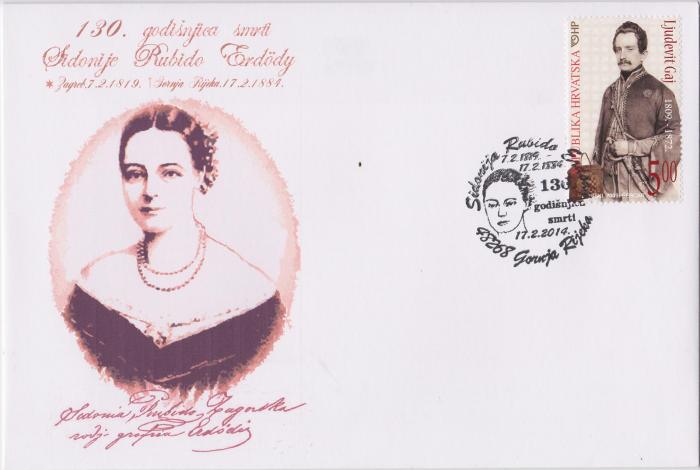 130. godišnjica smrti
Sidonije Rubido Erdödy
Zagreb, 7.2.1819. Gornja Rijeka, 17.2.1884.
Ljudevit Gaj
1809 - 1872
REPUBLIKA HRVATSKA
HP
5,00
Sidonija Rubido
7.2.1819. -
17.2.1884.
130
godišnjica
smrti
17.2.2014.
48268 Gornja Rijeka
Sidonia Rubido Zagorska
rodj. grofica Erdödi